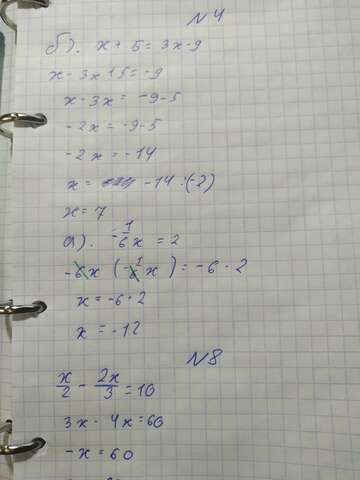 N4
б). x + 5 = 3x - 9
x - 3x + 5 = -9
x - 3x = -9 - 5
-2x = -9 - 5
-2x = -14
x = -14 : (-2)
x = 7
а). -1/6 x = 2
-6x (-1/6 x) = -6 · 2
x = -6 · 2
x = -12
N8
x/2 - 2x/3 = 10
3x - 4x = 60
-x = 60